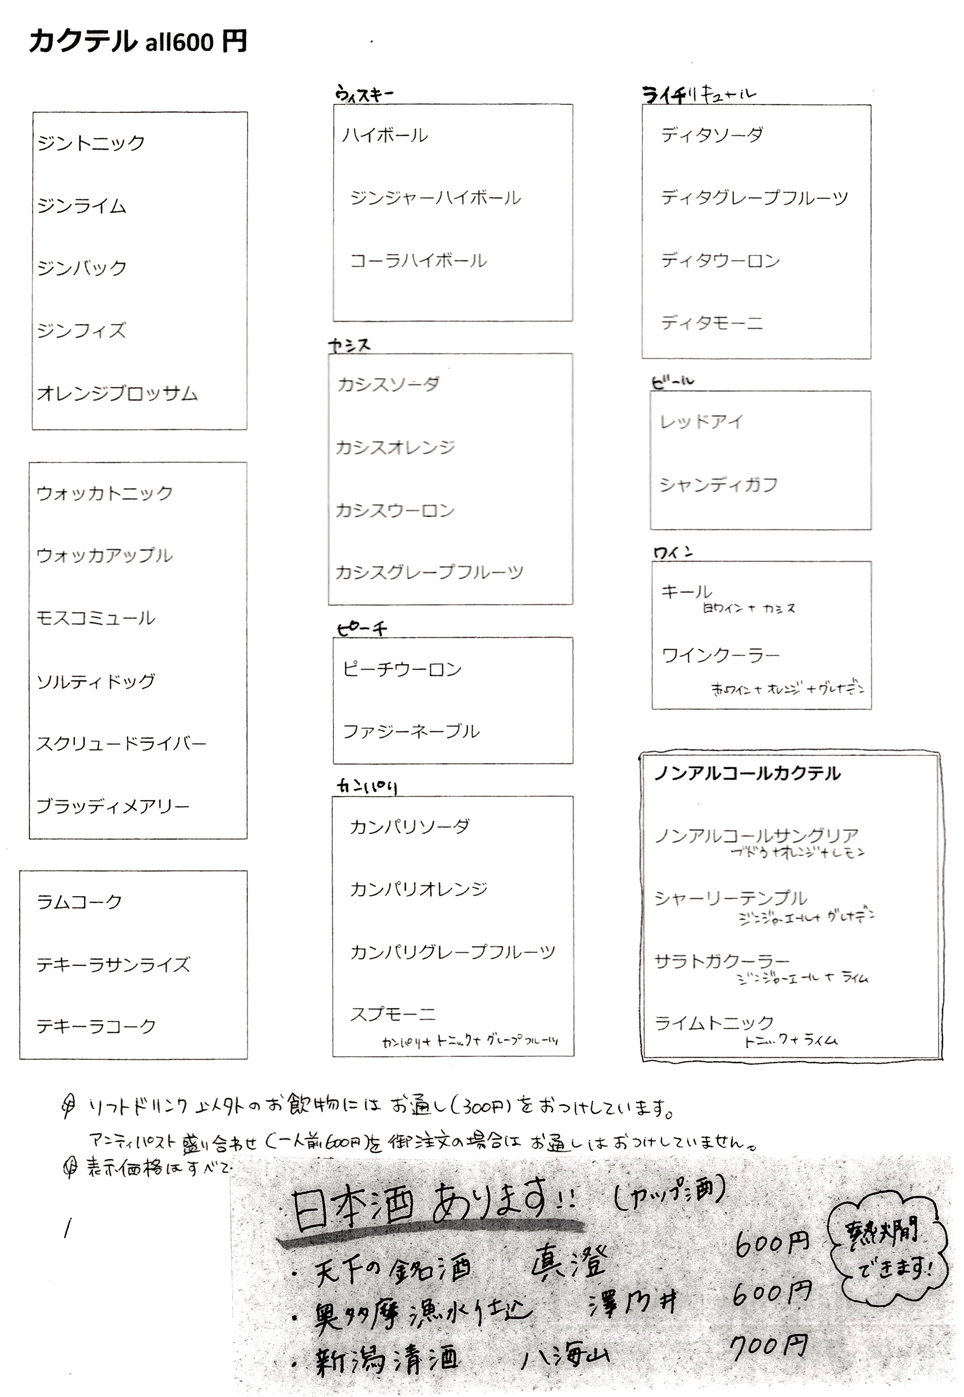 カクテル all600 円
ジントニック
ジンライム
ジンバック
ジンフィズ
オレンジブロッサム
ウォッカトニック
ウォッカアップル
モスコミュール
ソルティドッグ
スクリュードライバー
ブラッディメアリー
ラムコーク
テキーラサンライズ
テキーラコーク
ウィスキー
ハイボール
ジンジャーハイボール
コーラハイボール
カシス
カシスソーダ
カシスオレンジ
カシスウーロン
カシスグレープフルーツ
ピーチ
ピーチウーロン
ファジーネーブル
カンパリ
カンパリソーダ
カンパリオレンジ
カンパリグレープフルーツ
スプモーニ
カンパリ+トニック+グレープフルーツ
ライチリキュール
ディタソーダ
ディタグレープフルーツ
ディタウーロン
ディタモーニ
ビール
レッドアイ
シャンディガフ
ワイン
キール
白ワイン+カシス
ワインクーラー
赤ワイン+オレンジ+グレナデン
ノンアルコールカクテル
ノンアルコールサングリア
ブドウ+オレンジ+レモン
シャーリーテンプル
ジンジャーエール+グレナデン
サラトガクーラー
ジンジャーエール+ライム
ライムトニック
トニック+ライム
ソフトドリンク以外のお飲物にはお通し(300円)をおつけしています。
アンティパスト盛り合わせ(一人前600円)を御注文の場合はお通しはおつけしていません。
表示価格はすべて
日本酒あります!! (カップ酒)
・天下の銘酒 真澄 600円
・奥多摩湧水仕込 澤乃井 600円
・新潟清酒 八海山 700円
熱燗
できます!